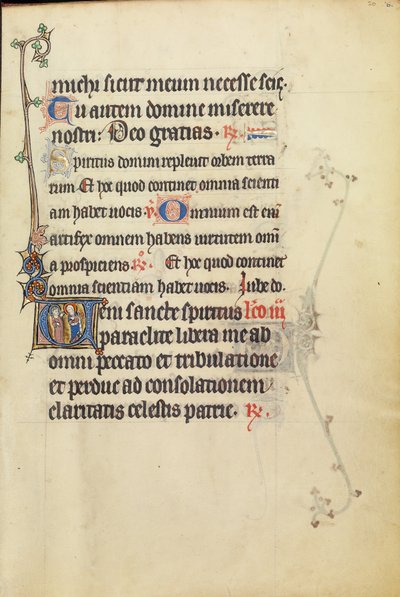 michi sicut meum necesse scis.
Tu autem domine miserere
nostri: Deo gratias. R.
Spiritus domini replevit orbem terra
rum Et hoc quod continet omnia scienti
am habet vocis. V. Omnium est enim
artifex omnem habens virtutem omni
a prospiciens R. Et hoc quod continet
omnia scientiam habet vocis. Jube do.
Veni sancte spiritus lco iii
paraclite libera me ab
omni peccato et tribulatione
et perduc ad consolationem
claritatis celestis patrie. R.